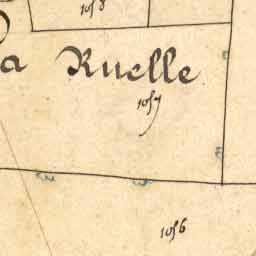 1058
a Ruelle
1057
1056